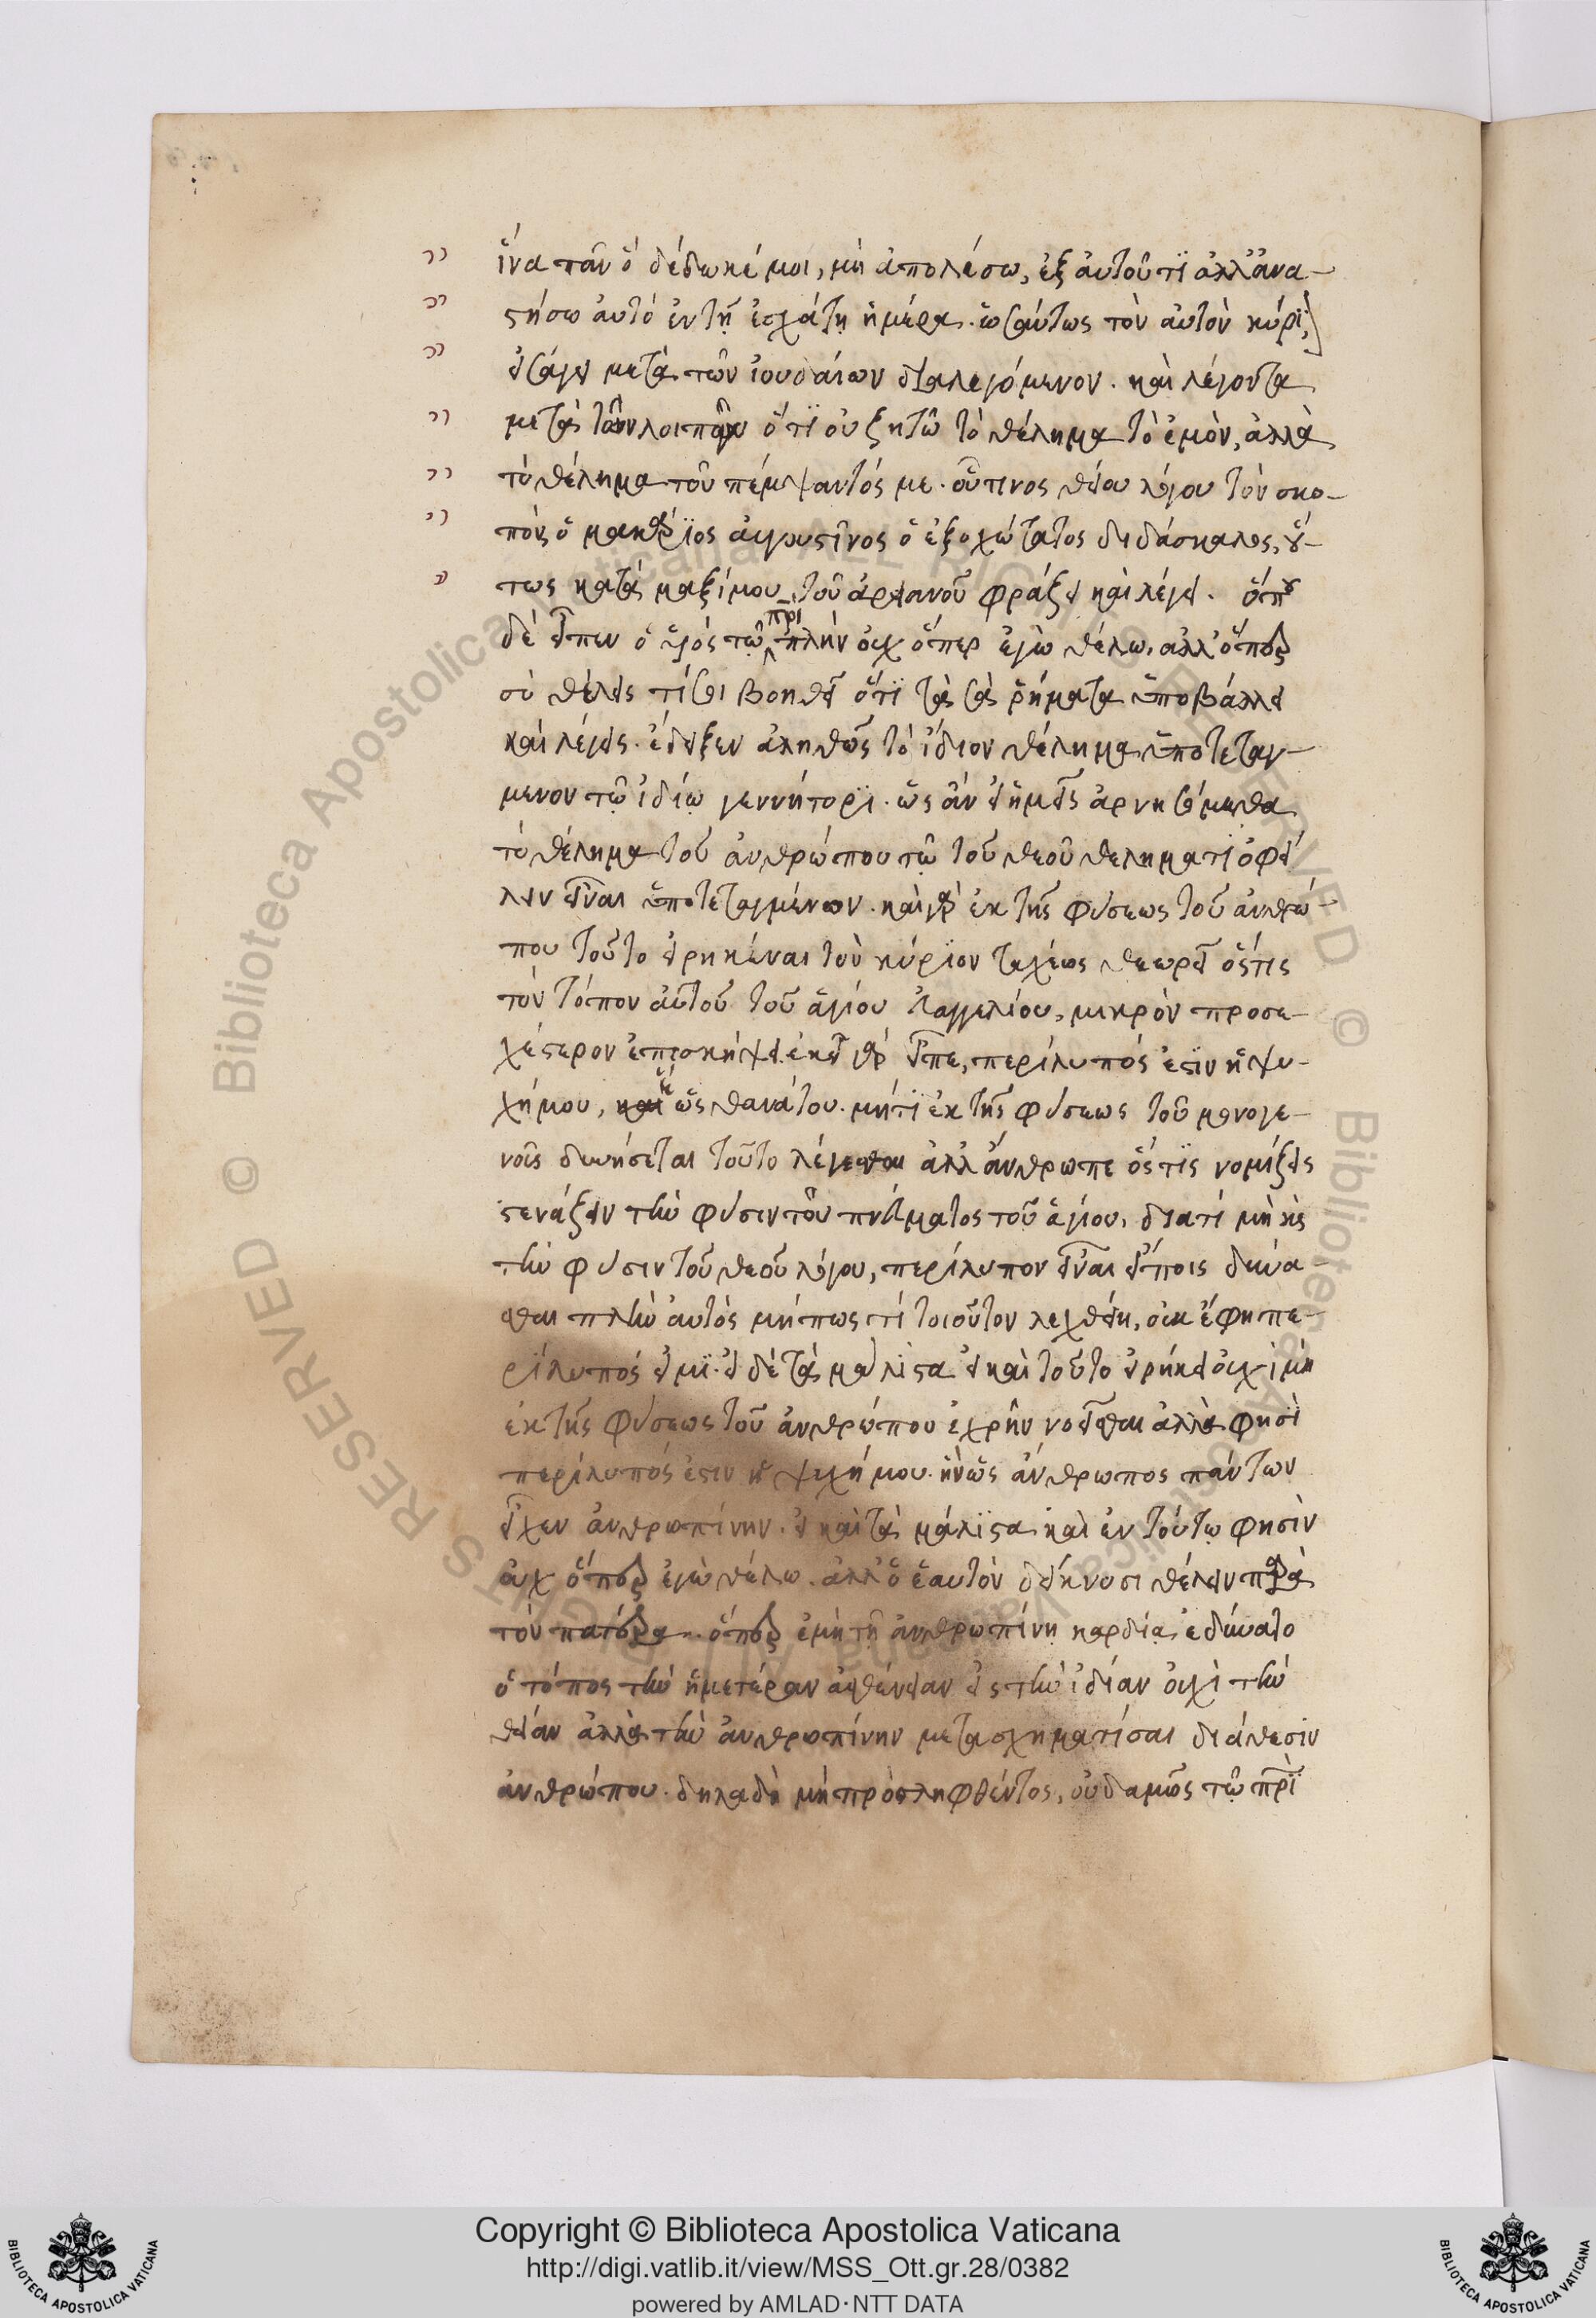 ἵνα πᾶν ὅ δέδωκέ μοι, μὴ ἀπολέσω, ἐξ αὐτοῦ τϊ ἀλλ' ἀνα-
στήσω ἀυτό ἐν τῇ ἐσχάτῃ ἡμέρα. ὡσάυτως τὸν ἀυτὸν κύρι
εἰσάγει μετὰ τῶν ἰουδάιων διαλεγόμενον. καὶ λέγοντα
μετὰ τῶν λοιπῶν ὅτϊ οὐ ζητῶ τὸ θέλημα τὸ ἐμὸν, ἀλλὰ
τὸ θέλημα τοῦ πέμψαντός με. οὗτινος θείου λόγου τὸν σκο-
πὸν ὁ μακάριος ἀυγουστῖνος ὁ ἐξοχώτατος διδάσκαλος, οὕ-
τως κατὰ μαξίμου τοῦ ἀρειανοῦ φράζει καὶ λέγει. ὅπου
δὲ εἶπεν ὁ ὑιός τῷ πρι πλὴν οὐχ ὅπερ ἐγὼ θέλω, αλλ' ὅπερ
σὺ θέλεις τί σοι βοηθεῖ ὅτϊ τὰ σὰ ῥήματα ὑποβάλλει
καὶ λέγεις. ἔδειξεν ἀληθῶς τὸ ἴδιον θέλημα ὑποτεταγ-
μενον τῷ ἰδίῳ γεννήτορϊ. ὡς ἂν εἰ ἡμεῖς ἀρνησόμεθα
τὸ θέλημα τοῦ ἀνθρώπου τῷ τοῦ θεοῦ θεληματϊ ὀφεί
λειν εἶναι ὑποτεταγμένον. καὶ γὰρ ἐκ τῆς φύσεως τοῦ ἀνθρώ-
που τοῦτο εἰρηκέναι τὸν κύριον ταχέως θεωρεῖ ὅστις
τὸν τόπον αὐτοῦ τοῦ ἁγίου ἐυαγγελίου, μικρὸν προσε-
χέστερον ἐπισκήψει. ἐκεῖ γὰρ εἶπε, περίλυπός ἐστϊν ἡ ψυ-
χή μου, ἕως θανάτου. μήτϊ ἐκ τῆς φύσεως τοῦ μονογε-
νοῦς δυνήσεται τοῦτο λέγεσθαι ἀλλ' ἄνθρωπε ὅστϊς νομίζεις
στενάζειν τὴν φύσιν τοῦ πνεύματος τοῦ ἁγίου, διατί μὴ κ̀
τὴν φύσιν τοῦ θεοῦ λόγου, περίλυπον εἶναι εἴποις δύνα-
σθαι πλὴν ἀυτὸς μήπως τί τοιοῦτον λεχθείη, οὐκ ἔφη πε-
ρίλυπός εἰμϊ. εἰ δὲ τὰ μαλϊστα εἰ καὶ τοῦτο εἰρήκει οὐχὶ μὴ
ἐκ τῆς φύσεως τοῦ ἀνθρώπου ἐχρῆν νοεῖσθαι ἀλλὰ φησὶ
περίλυπός ἐστιν ἡ ψυχή μου. ἣν ὡς ἄνθρωπος πάντων
εἶχεν ἀνθρωπίνην. εἰ καὶ τὰ μάλϊστα καὶ ἐν τούτῳ φησὶν
οὐχ ὅπερ ἐγὼ θέλω. ἀλλ' ὁ ἑαυτὸν δείκνυσι θέλειν παρὰ
τὸν πατέρα. ὅπερ ἐμὴ τῇ ἀνθρωπίνῃ καρδίᾳ ἐδύνατο
ὁ τόπος τὴν ἡμετέραν ἀσθένειαν εἰς τὴν ἰδίαν οὐχὶ τὴν
θείαν ἀλλὰ τὴν ἀνθρωπίνην μετασχηματίσαι διάθεσϊν
ἀνθρώπου. δηλαδὴ μὴ πρόσληφθέντος, οὐδαμῶς τῷ πρϊ
Copyright © Biblioteca Apostolica Vaticana
http://digi.vatlib.it/view/MSS_Ott.gr.28/0382
powered by AMLAD·NTT DATA